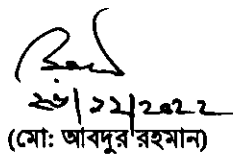 ২৮/১২/২০২২
(মোঃ আবদুর রহমান)